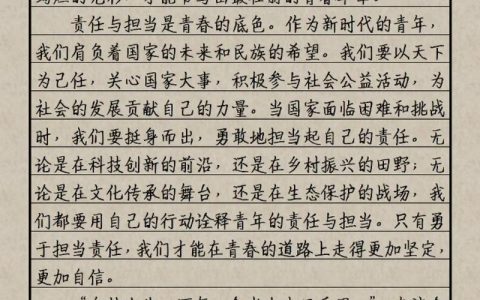 责任与担当是青春的底色。作为新时代的青年，
我们肩负着国家的未来和民族的希望。我们要以天下
为己任，关心国家大事，积极参与社会公益活动，为
社会的发展贡献自己的力量。当国家面临困难和挑战
时，我们要挺身而出，勇敢地担当起自己的责任。无
论是在科技创新的前沿，还是在乡村振兴的田野；无
论是在文化传承的舞台，还是在生态保护的战场，我
们都要用自己的行动诠释青年的责任与担当。只有勇
于担当责任，我们才能在青春的道路上走得更加坚定，
更加自信。